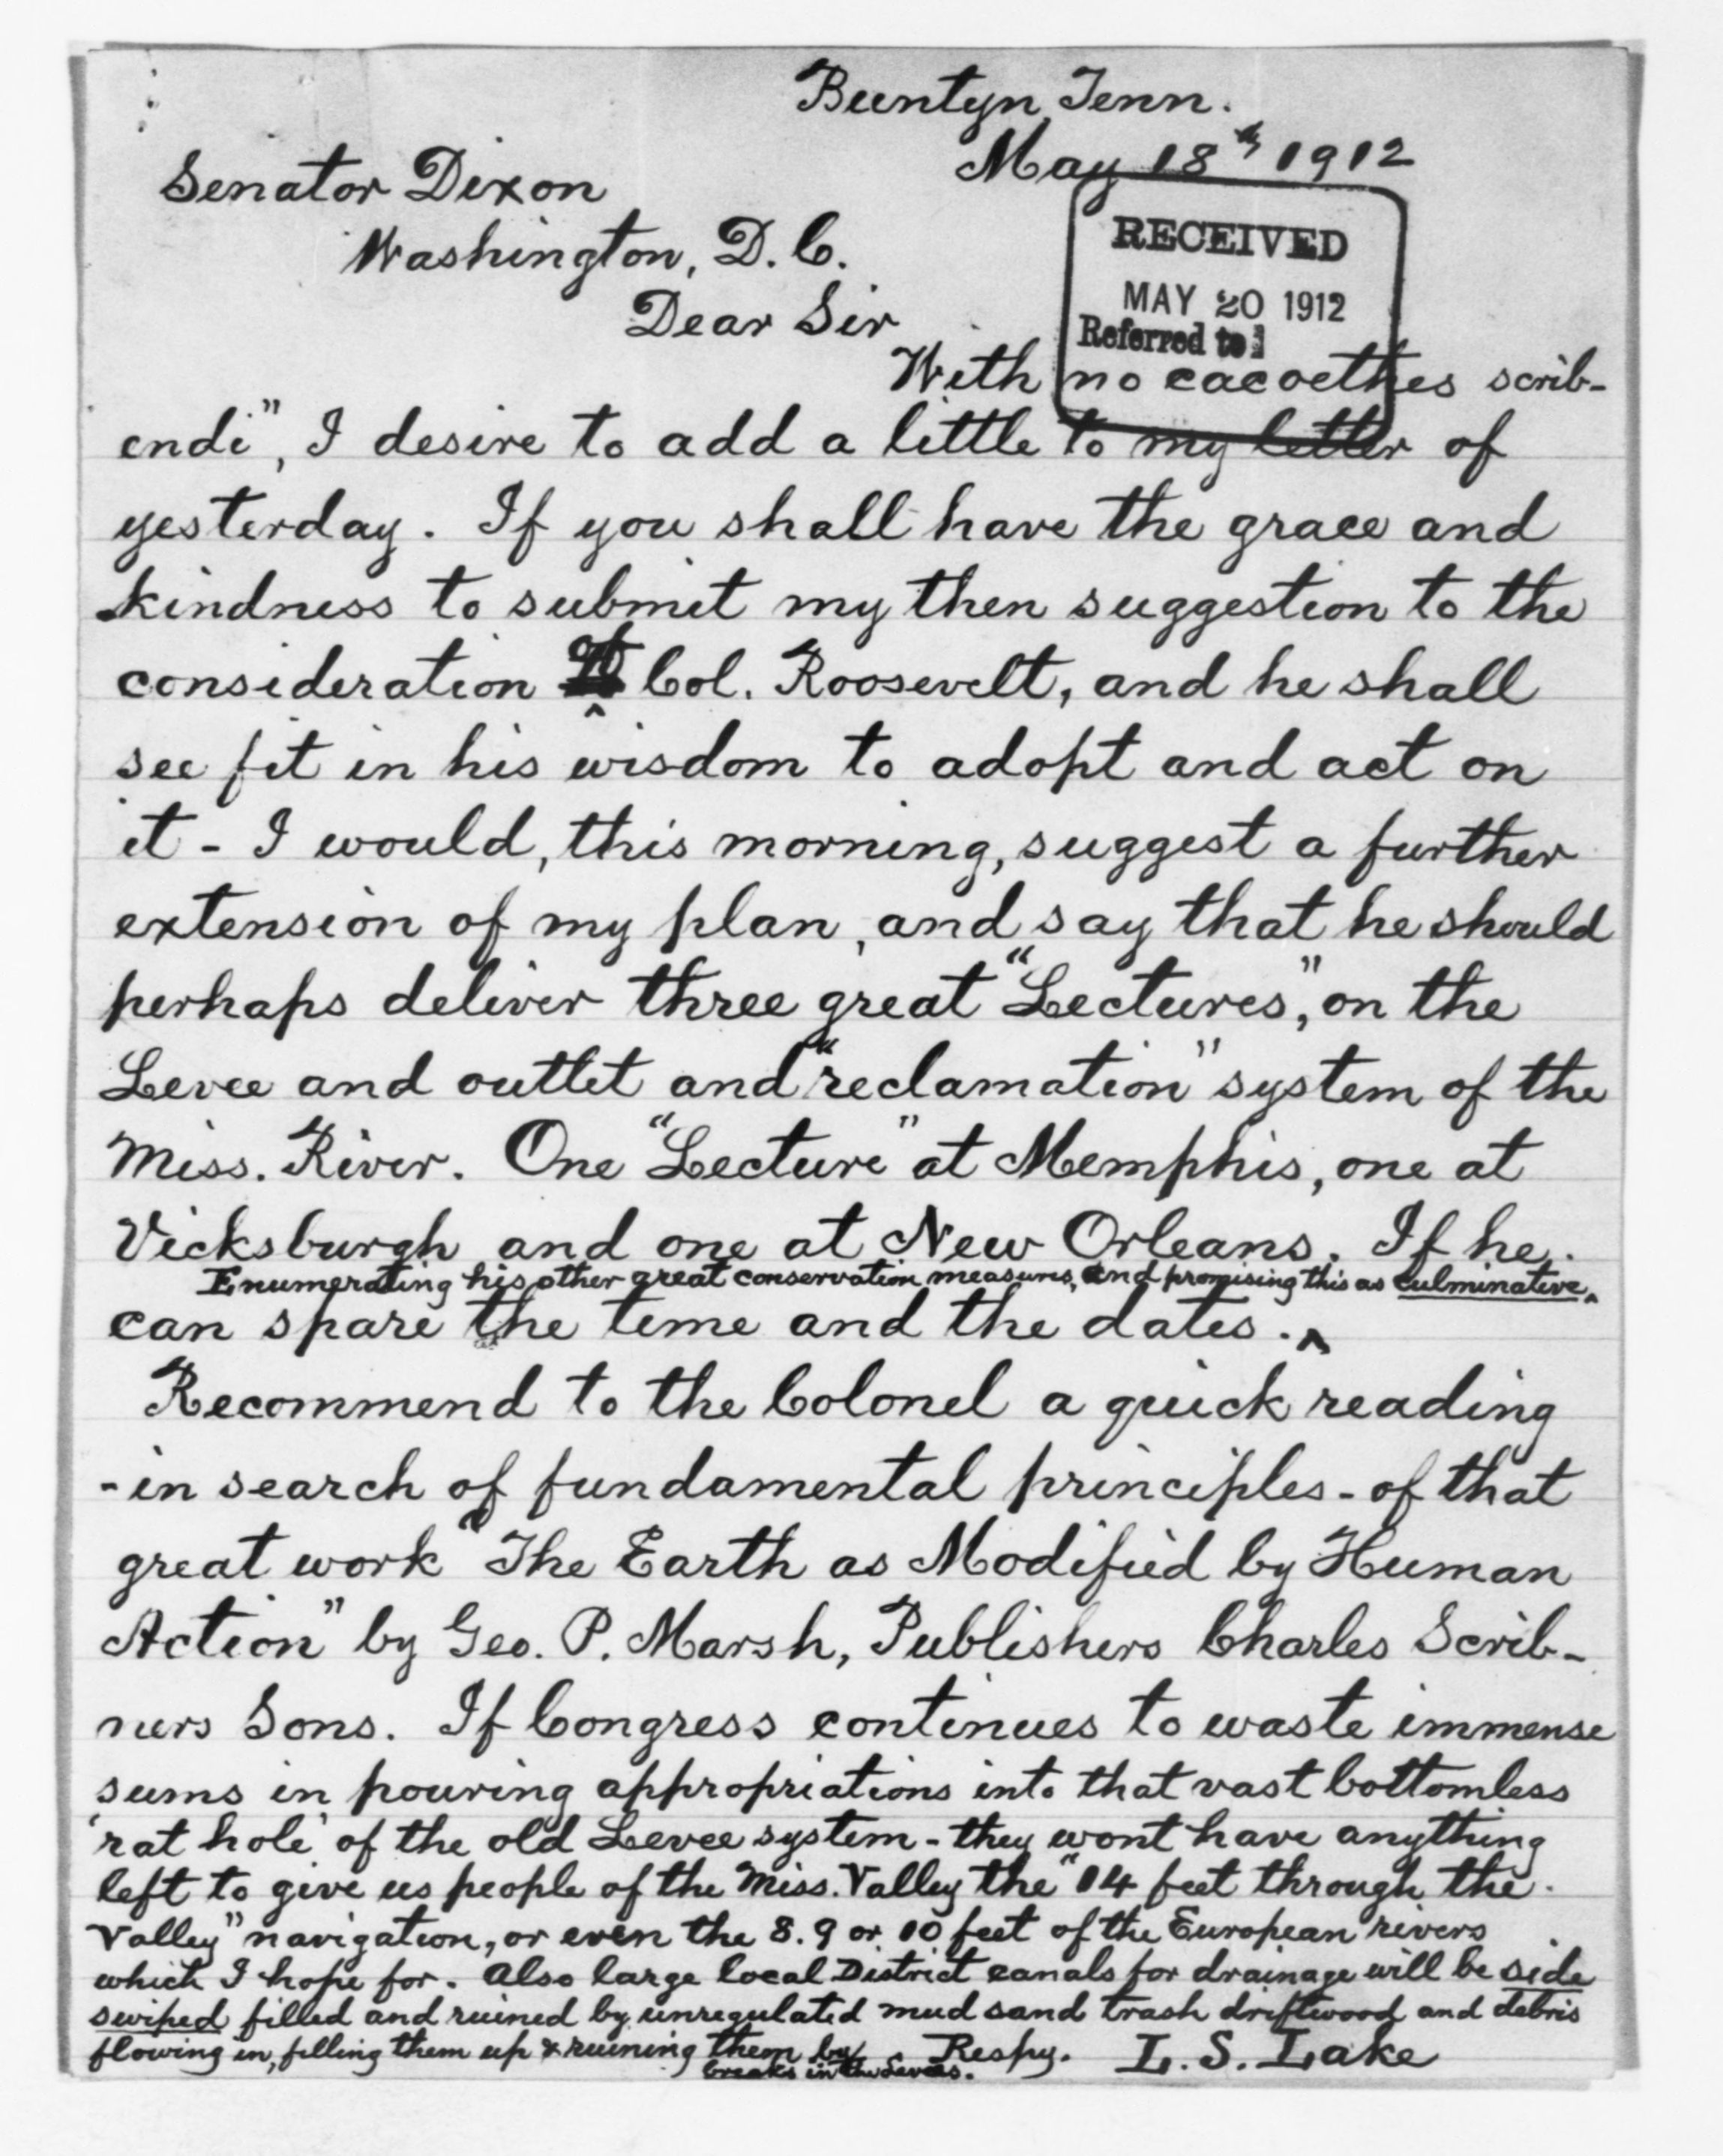 Buntyn, Tenn.
May 18th 1912
Senator Dixon
Washington, D.C.
Dear Sir
RECEIVED
MAY 20 1912
Referred to
With no cacoethes scrib-
endi", I desire to add a little to my letter of
yesterday. If you shall have the grace and
kindness to submit my then suggestion to the
consideration of Col. Roosevelt, and he shall
see fit in his wisdom to adopt and act on
it - I would, this morning, suggest a further
extension of my plan, and say that he should
perhaps deliver three great "Lectures", on the
Levee and outlet and "reclamation" system of the
Miss. River. One "Lecture" at Memphis, one at
Vicksburgh and one at New Orleans. If he
Enumerating his other great conservation measures, and promising this as culminative
can spare the time and the dates.
Recommend to the Colonel a quick reading
- in search of fundamental principles - of that
great work "The Earth as Modified by Human
Action" by Geo. P. Marsh, Publishers Charles Scrib-
ners Sons. If Congress continues to waste immense
sums in pouring appropriations into that vast bottomless
'rat hole' of the old Levee system - they wont have anything
left to give us people of the Miss. Valley the "14 feet through the
Valley" navigation, or even the 8. 9 or 10 feet of the European rivers
which I hope for. Also large local District canals for drainage will be side
swiped filled and ruined by unregulated mud sand trash driftwood and debris
flowing in, filling them up & ruining them by
breaks in the Levees.
Respy. L. S. Lake